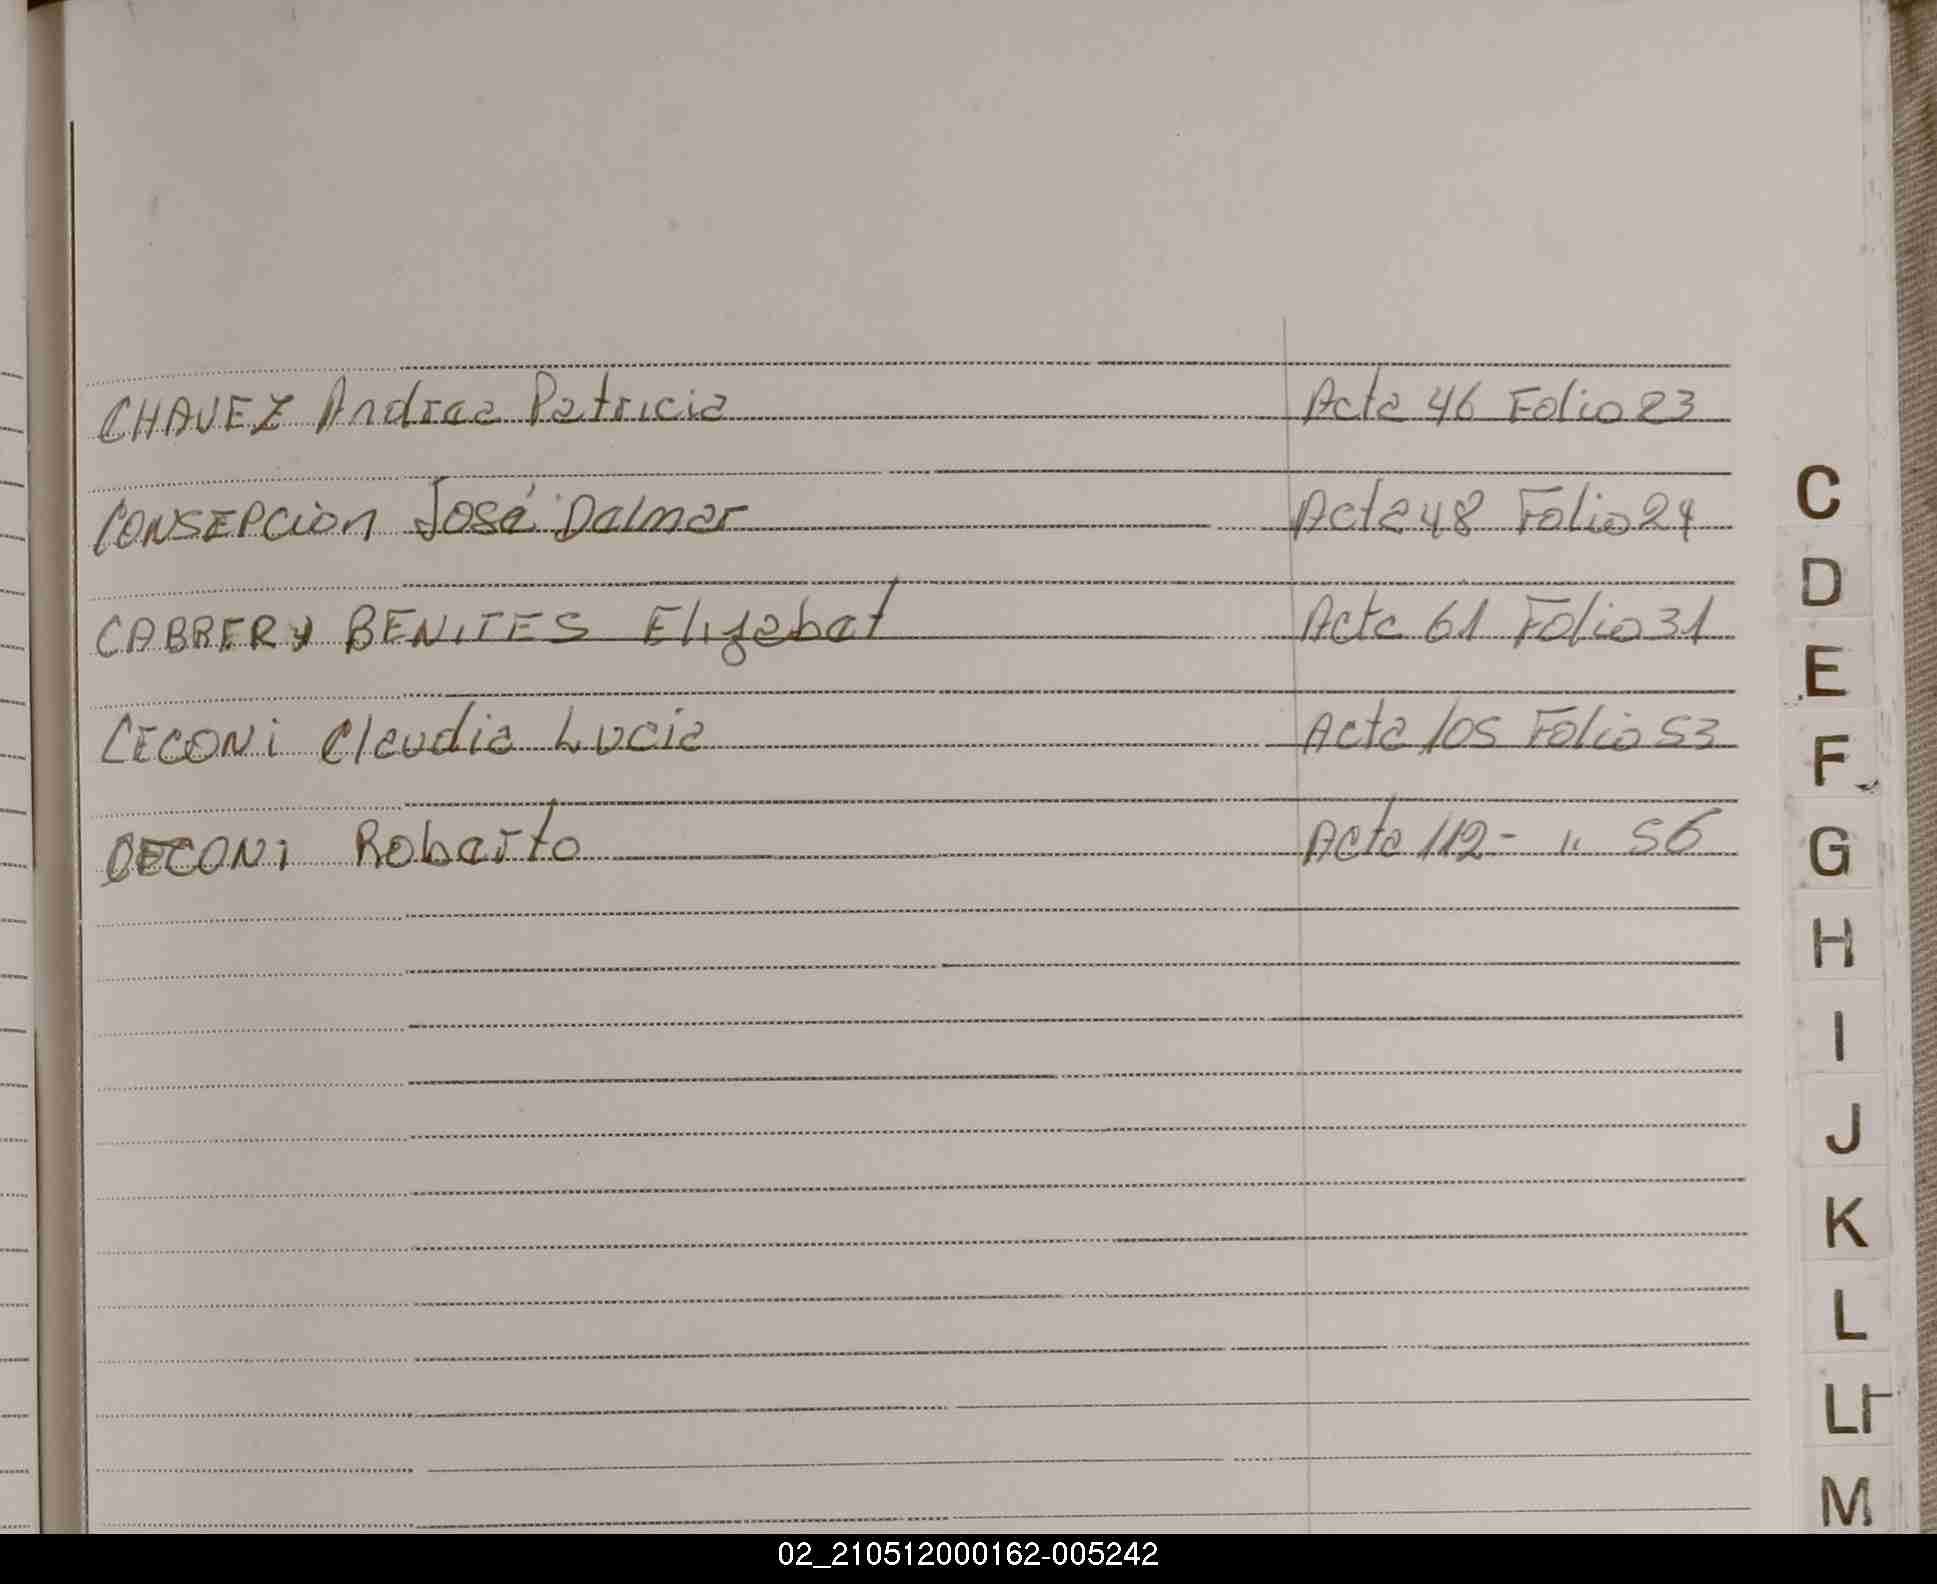 CHAVEZ Andrea Patricia Acta 46 Folio 23
CONSEPCion José Dalmar Acta 48 Folio 24
CABRER y BENITES Elizabat Acta 61 Folio 31
CECONi Claudia Lucia Acta 105 Folio 53
CECONi Roberto Acta 112 - " 56
C
D
E
F
G
H
I
J
K
L
Ll
M
02_210512000162-005242